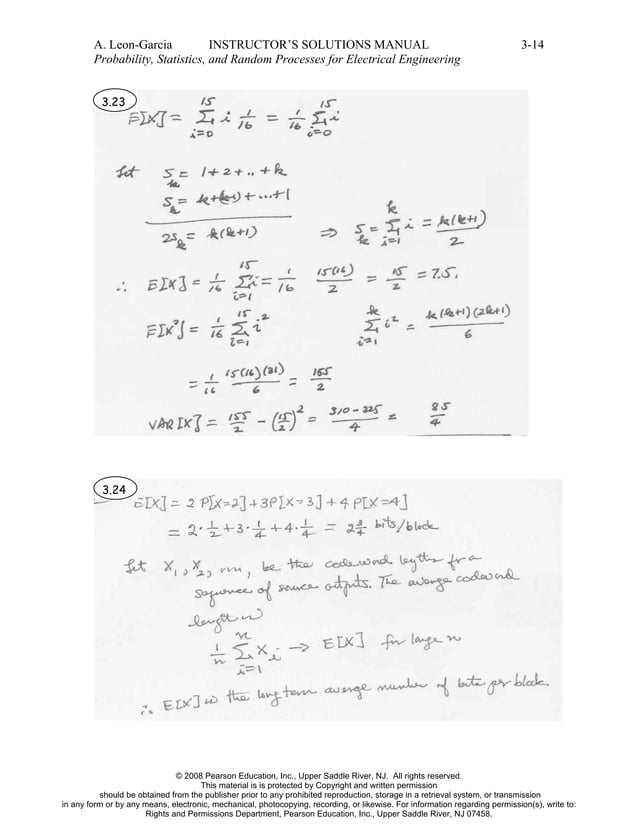 A. Leon-Garcia INSTRUCTOR'S SOLUTIONS MANUAL 3-14
Probability, Statistics, and Random Processes for Electrical Engineering
3.23
E[X] = Σ_{i=0}^{15} i 1/16 = 1/16 Σ_{i=0}^{15} i
Let S_k = 1+2+..+k
S_k = k+(k-1)+...+1
2S_k = k(k+1) ⇒ S_k = Σ_{i=1}^{k} i = k(k+1)/2
∴ E[X] = 1/16 Σ_{i=1}^{15} i = 1/16 15(16)/2 = 15/2 = 7.5.
E[X²] = 1/16 Σ_{i=1}^{15} i² Σ_{i=1}^{k} i² = k(k+1)(2k+1)/6
= 1/16 15(16)(31)/6 = 155/2
VAR[X] = 155/2 - (15/2)² = 310-225/4 = 85/4
3.24
E[X] = 2 P[X=2]+3P[X=3]+4P[X=4]
= 2·1/2+3·1/4+4·1/4 = 2 3/4 bits/block
Let X₁, X₂, , be the codeword lengths for a
sequence of source outputs. The average codeword
length is
1/n Σ_{i=1}^{n} X_i → E[X] for large n
∴ E[X] is the long term average number of bits per block.
© 2008 Pearson Education, Inc., Upper Saddle River, NJ. All rights reserved.
This material is is protected by Copyright and written permission
should be obtained from the publisher prior to any prohibited reproduction, storage in a retrieval system, or transmission
in any form or by any means, electronic, mechanical, photocopying, recording, or likewise. For information regarding permission(s), write to:
Rights and Permissions Department, Pearson Education, Inc., Upper Saddle River, NJ 07458.